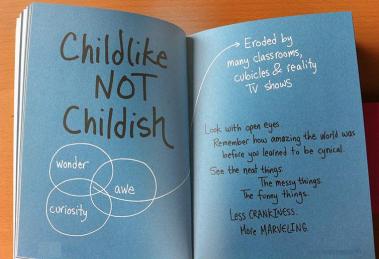 Childlike
NOT
Childish
wonder
awe
curiosity
Eroded by
many classrooms,
cubicles & reality
TV shows
Look with open eyes
Remember how amazing the world was
before you learned to be cynical.
See the neat things.
The messy things.
The funny things.
Less CRANKINESS.
More MARVELING.